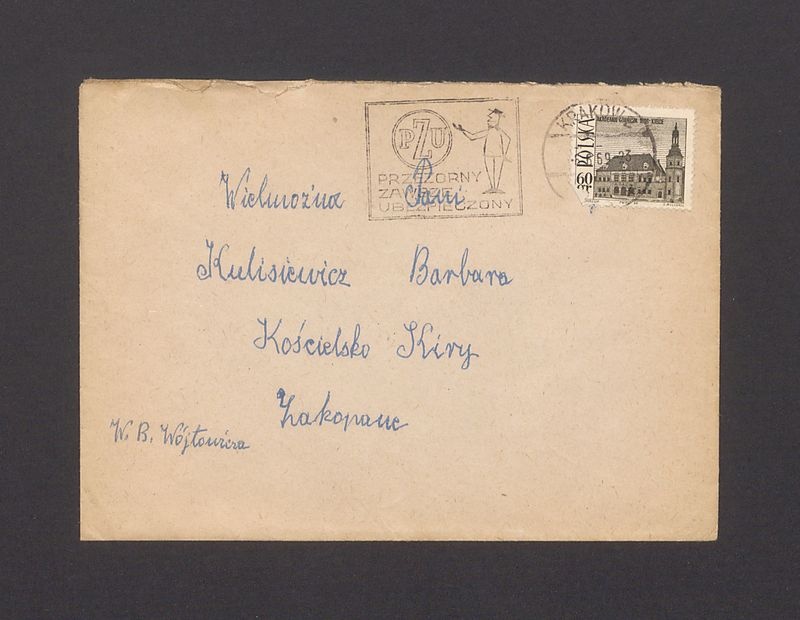 PZU
PRZEZORNY
ZAWSZE
UBEZPIECZONY
KRAKÓW
69-23
POLSKA
60
GR
Wielmożna Pani
Kulisiewicz Barbara
Kościelsko Kiry
Zakopane
W. B. Wójtowicza